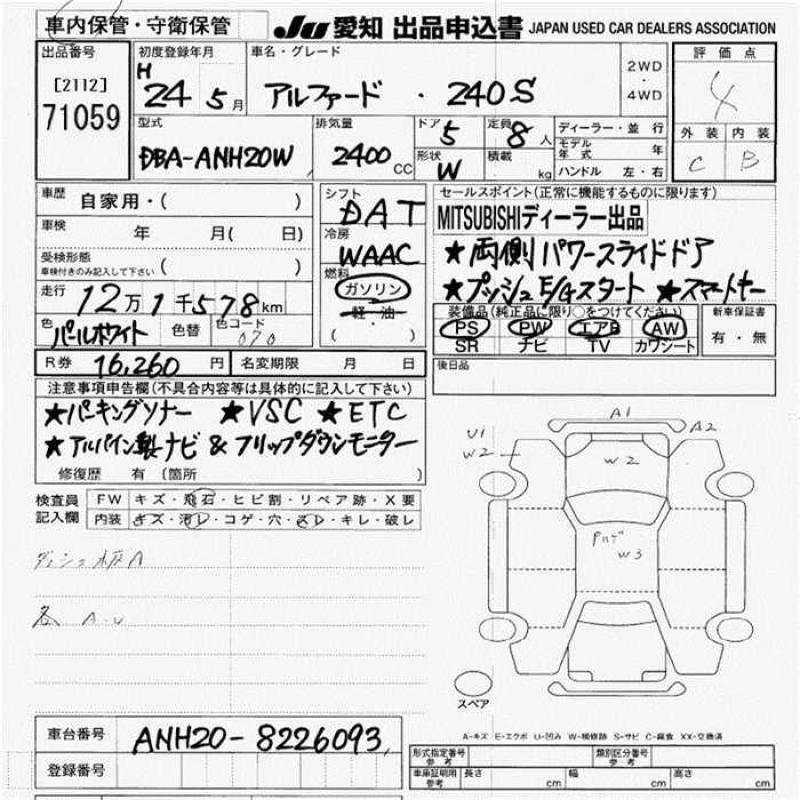 車内保管・守衛保管
JU 愛知 出品申込書 JAPAN USED CAR DEALERS ASSOCIATION
出品番号
[2112]
71059
初度登録年月
H
24 5月
車名・グレード
アルファード ・ 240S
2WD
・
4WD
評価点
4
外装 内装
C B
型式
DBA-ANH20W
排気量
2400 CC
ドア 5
定員 8 人
形状 W
積載 kg
ディーラー・並行
モデル年式 年
ハンドル 左・右
車歴 自家用・( )
車検 年 月( 日)
受検形態
車検付きのみ記入して下さい ( )
走行 12万1千578km
色 パールホワイト
色替
色コード 070
シフト
DAT
冷房
WAAC
燃料
ガソリン
軽・油
( )
セールスポイント(正常に機能するものに限ります)
MITSUBISHIディーラー出品
★両側パワースライドドア
★プッシュE/Gスタート ★スマートキー
装備品(純正品に限り○をつけてください)
PS PW エアB AW
SR ナビ TV カワシート
新車保証書
有・無
R券 16,260 円
名変期限 月 日
後日品
注意事項申告欄(不具合内容等は具体的に記入して下さい)
★パーキングソナー ★VSC ★ETC
★アルパイン製ナビ & フリップダウンモニター
修復歴 有 (箇所 )
検査員
記入欄
FW キズ・飛石・ヒビ割・リペア跡・X要
内装 キズ・汚レ・コゲ・穴・スレ・キレ・破レ
A1
A2
U1
W2
W2
W3
各 A.U
スペア
A-キズ E-エクボ U-凹み W-補修跡 S-サビ C-腐食 XX-交換済
車台番号 ANH20-8226093
登録番号
形式指定番号
参考
類別区分番号
参考
車庫証明用
参考
長さ cm
幅 cm
高さ cm